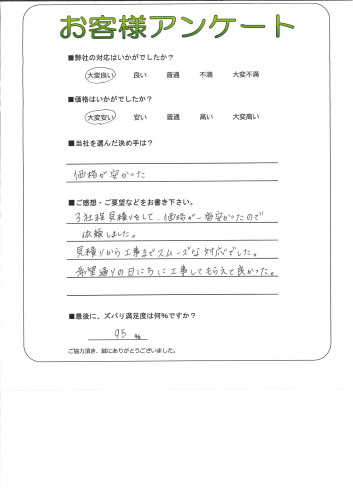 お客様アンケート
■弊社の対応はいかがでしたか？
大変良い 良い 普通 不満 大変不満
■価格はいかがでしたか？
大変安い 安い 普通 高い 大変高い
■当社を選んだ決め手は？
価格が安かった
■ご感想・ご要望などをお書き下さい。
3社程見積りをして、価格が一番安かったので
依頼しました。
見積りから工事までスムーズな対応でした。
希望通りの日にちに工事してもらえて良かった。
■最後に、ズバリ満足度は何％ですか？
95 ％
ご協力頂き、誠にありがとうございました。